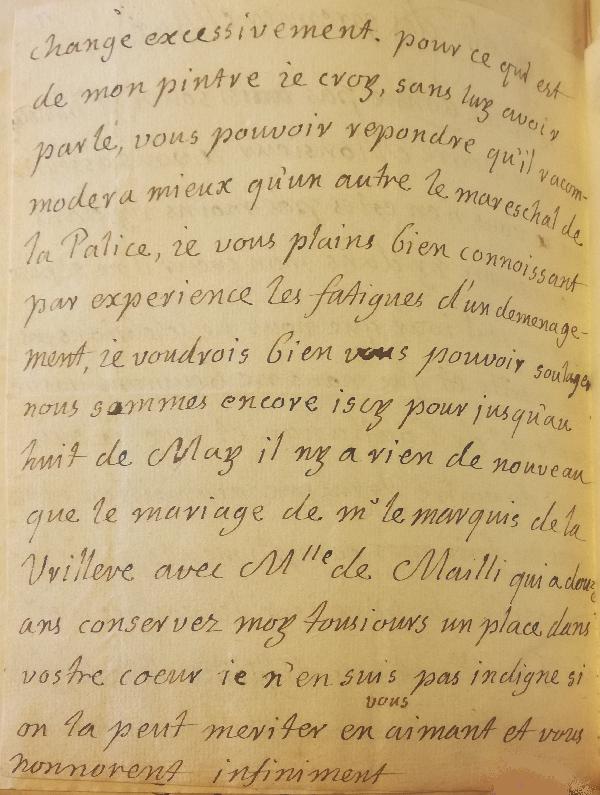 changé excessivement. pour ce qui est
de mon pintre ie croy, sans luy avoir
parlé, vous pouvoir repondre qu'il racom-
modera mieux qu'un autre le mareschal de
la Palice, ie vous plains bien connoissant
par experience les fatigues d'un demenage-
ment, ie voudrois bien vous pouvoir soulager
nous sommes encore iscy pour jusqu'au
huit de May il ny a rien de nouveau
que le mariage de mr le marquis de la
Vrilleve avec Mlle de Mailli qui a douze
ans conservez moy tousiours un place dans
vostre coeur ie n'en suis pas indigne si
on la peut meriter en vous aimant et vous
honnorent infiniment